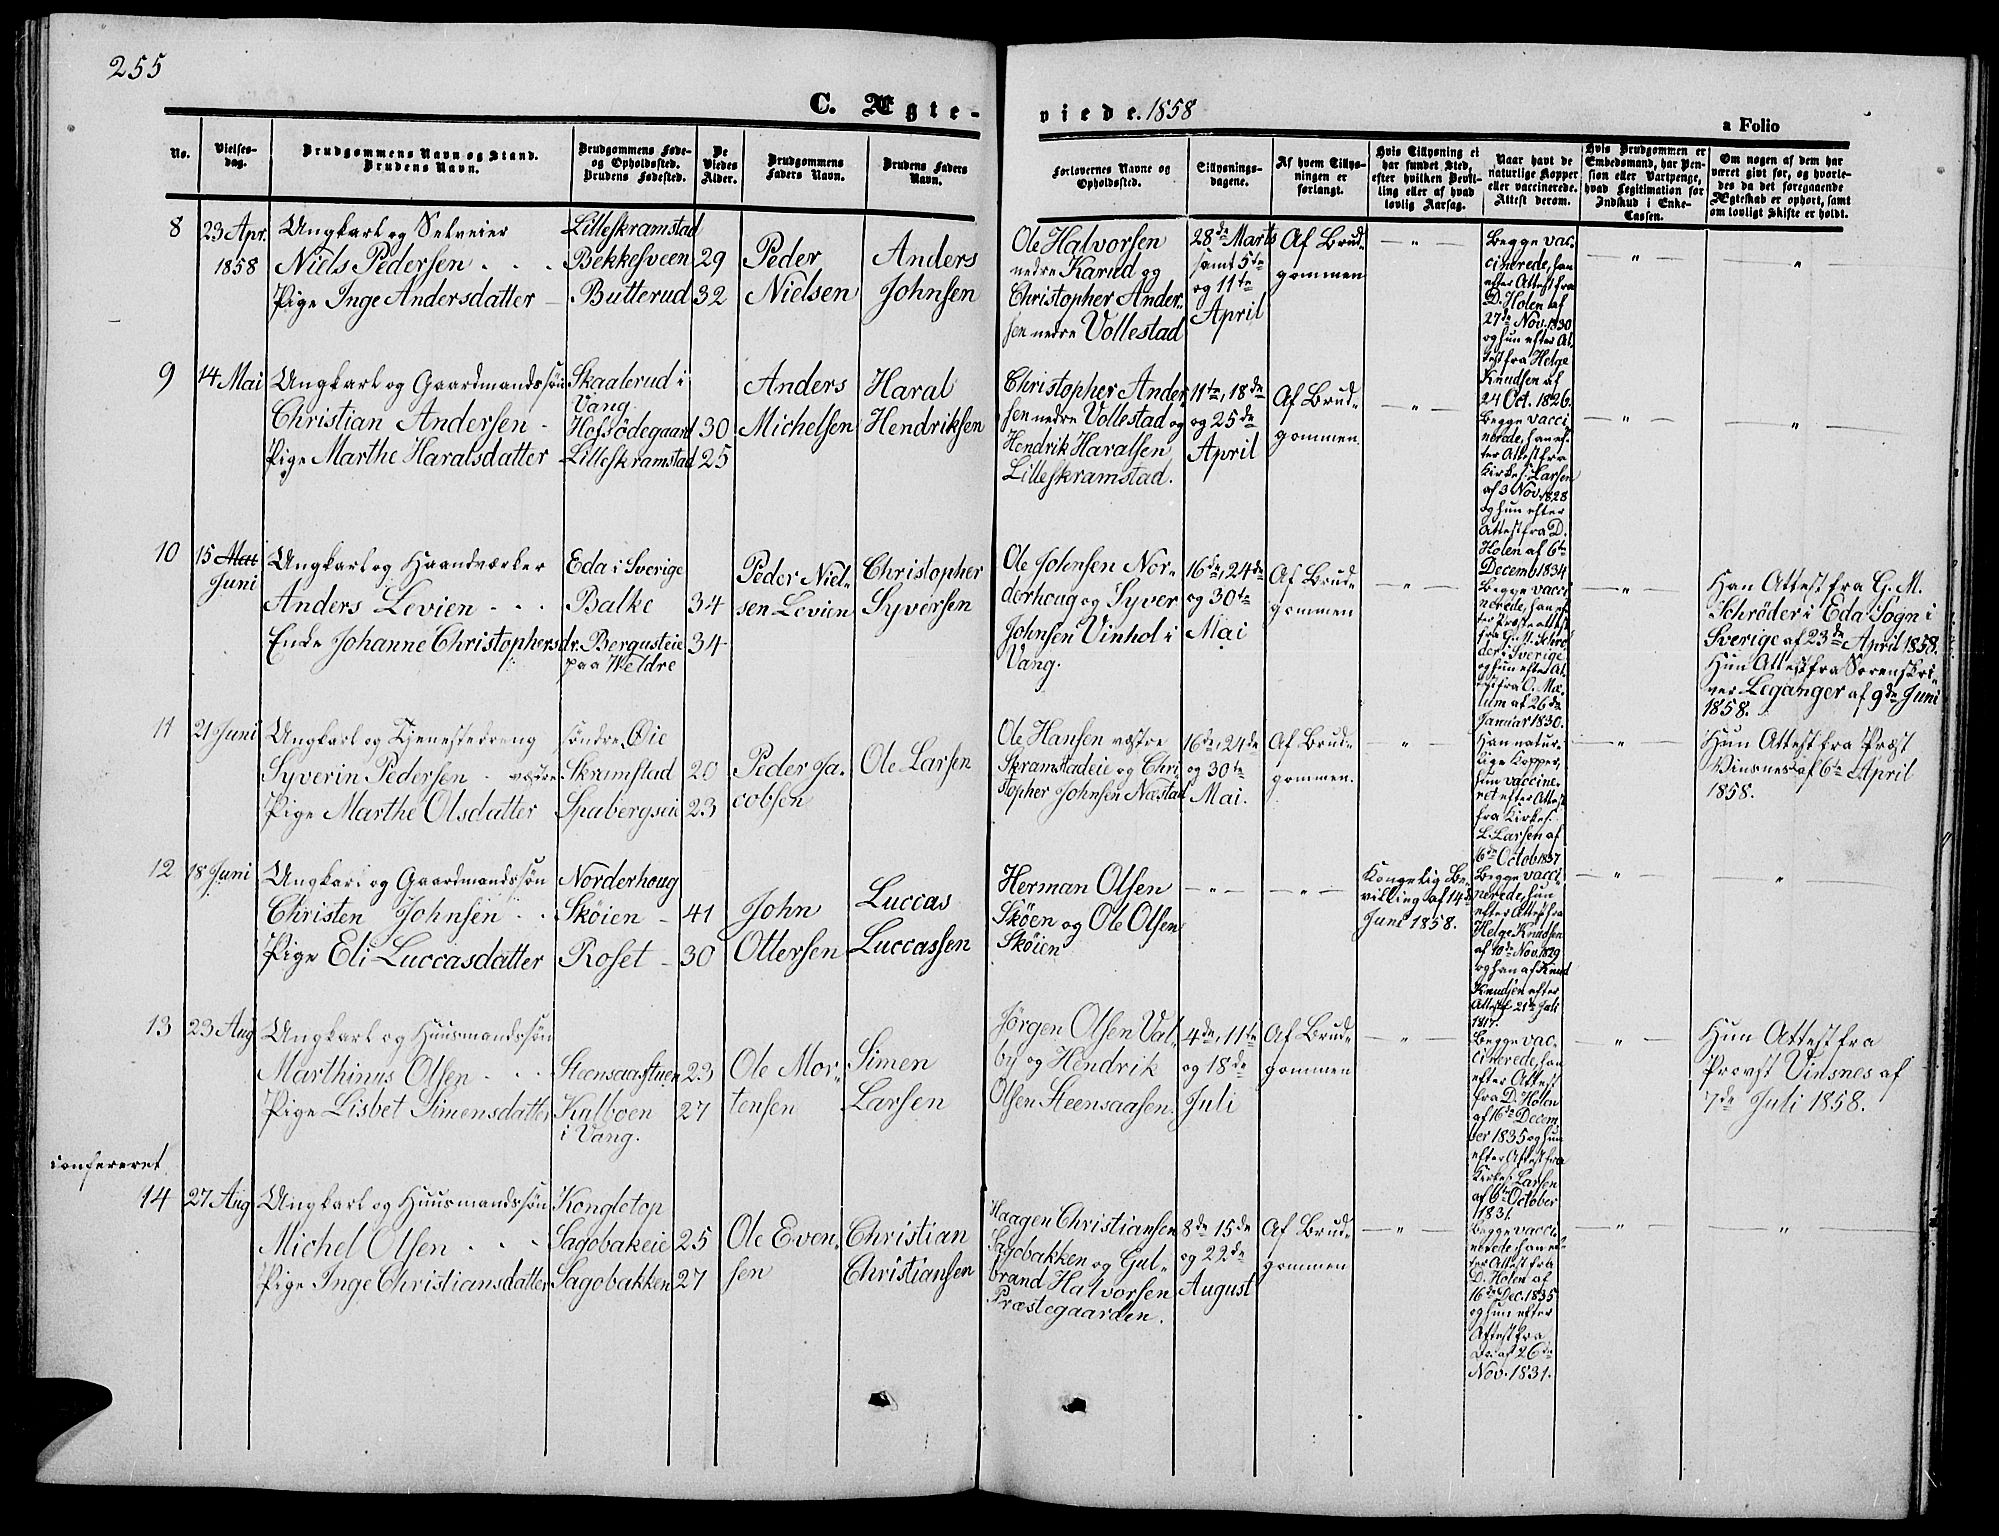 255
C. Ægte-
viede. 1858
a Folio
No.
Vielses-
dag.
Brudgommens Navn og Stand.
Brudens Navn.
Brudgommens Føde-
og Opholdssted.
Brudens Fødested.
De
Viedes
Alder.
Brudgommens
Faders Navn.
Brudens Faders
Navn.
Forlovernes Navne og
Opholdssted.
Tillysnings-
dagene.
Af hvem Tillys-
ningen er
forlangt.
Hvis Tillysning ei
har fundet Sted,
efter hvilken Bevil-
ling eller af hvad
lovlig Aarsag.
Naar havt de
naturlige Kopper
eller vaccinerede.
Attest derom.
Hvis Brudgommen er
Embedsmand, har Pen-
sion eller Vartpenge,
hvad Legitimation for
Indskud i Enke-
Cassen.
Om nogen af dem har
været gift før, og hvorle-
des da det foregaaende
Ægteskab er ophørt, samt
om lovligt Skifte er holdt.
8
23 Apr.
1858
Ungkarl og Selveier
Niels Pedersen
Pige Inge Andersdatter
Lilleskramstad
Bekkesveen
Butterud
29
32
Peder
Nielsen
Anders
Johnsen
Ole Halvorsen
nedre Karud og
Christopher Ander-
sen nedre Vollestad
28de Marts
samt 5te
og 11te
April
Af Brud-
gommen
— " —
Begge vac-
cinerede, han
efter Attest fra
D. Holen af
27de Nov. 1830
og hun efter At-
test fra Helge
Knudsen af
24 Oct. 1826.
— " —
— " —
9
14 Mai
Ungkarl og Gaardmandssøn
Christian Andersen
Pige Marthe Haralsdatter
Skaalerud i
Vang
Hofsødegaard
Lilleskramstad
30
25
Anders
Michelsen
Haral
Hendriksen
Christopher Ander-
sen nedre Vollestad og
Hendrik Haralsen
Lilleskramstad.
11te, 18de
og 25de
April
Af Brud-
gommen.
— " —
Begge vacci
nerede, han ef-
ter Attest fra
Kirkes. Larsen
af 3 Nov. 1828
og hun efter
Attest fra D.
Holen af 6te
Decemb 1834
— " —
— " —
10
15 Mai
Juni
Ungkarl og Haandværker
Anders Levien
Enke Johanne Christophersdr.
Eda i Sverige
Balke
Bergusteie
paa Heldre
34
34
Peder Niel-
sen Levien
Christopher
Syversen
Ole Johnsen Nor-
derhoug og Syver
Johnsen Vinhol i
Vang.
16de, 24de
og 30te
Mai
Af Brud-
gommen
— " —
Begge vacci
nerede, han ef-
ter Præsteattest
fra G. M. Schrø
der i Sverige
og hun efter At-
test fra O. Mæ-
lum af 26de
Januar 1830.
— " —
Han Attest fra G. M.
Schrøder i Eda Sogn i
Sverige af 23de April 1858.
Hun Attest fra Sorenskri-
ver Leganger af 9de Juni
1858.
11
21 Juni
Ungkarl og Tjenestedreng
Syverin Pedersen
Pige Marthe Olsdatter
søndre Øie
vestre Skramstad
Spabergseie
20
23
Peder Ja-
cobsen
Ole Larsen
Ole Hansen vestre
Skramstadeie og Chri-
stopher Johnsen Næstad
16de, 24de
og 30te
Mai.
Af Brud-
gommen.
— " —
Han natur-
lige Kopper,
hun vaccine-
ret efter Attest
fra Kirkes.
L. Larsen af
6te Octob 1837
— " —
Hun Attest fra Præst
Vinsnes af 6te April
1858.
12
18 Juni
Ungkarl og Gaardmandssøn
Christen Johnsen
Pige Eli Luccasdatter
Norderhoug
Skøien
Roset
41
30
John
Ottersen
Luccas
Luccassen
Herman Olsen
Skøen og Ole Olsen
Skøien
— " —
— " —
Kongelig Be-
villing af 14de
Juni 1858.
Begge vacci
nerede, hun
efter Attest fra
Helge Knudsen
af 10de Nov. 1829
og han af Knud
Knudsen efter
Attest 21te Juli
1817.
— " —
"
13
23 Aug
Ungkarl og Huusmandssøn
Marthinus Olsen
Pige Lisbet Simensdatter
Steensaastuen
Kalboen
i Vang.
23
27
Ole Mor-
tensen
Simen
Larsen
Jørgen Olsen Val-
by og Hendrik
Olsen Steensaasen.
4de, 11te
og 18de
Juli
Af Brud-
gommen
— " —
Begge vac-
cinerede, han
efter Attest
fra D. Holen
af 16de Decem
ber 1835 og hun
efter Attest fra
Kirkes. Larsen
af 6te October
1831.
— " —
Hun Attest fra
Provst Vinsnes af
7de Juli 1858.
confereret
14
27 Aug
Ungkarl og Huusmandssøn
Michel Olsen
Pige Inge Christiansdatter
Kongletop
Sagobakeie
Sagobakken
25
27
Ole Even-
sen
Christian
Christiansen
Haagen Christiansen
Sagobakken og Gul-
brand Halvorsen
Præstegaarden.
8de 15de
og 22de
August
Af Brud-
gommen
— " —
Begge vacci-
nerede, han ef-
ter Attest fra
D. Holen af
16de Dec. 1835
og hun efter
Attest fra
Do. af 26de
Nov. 1831.
— " —
"